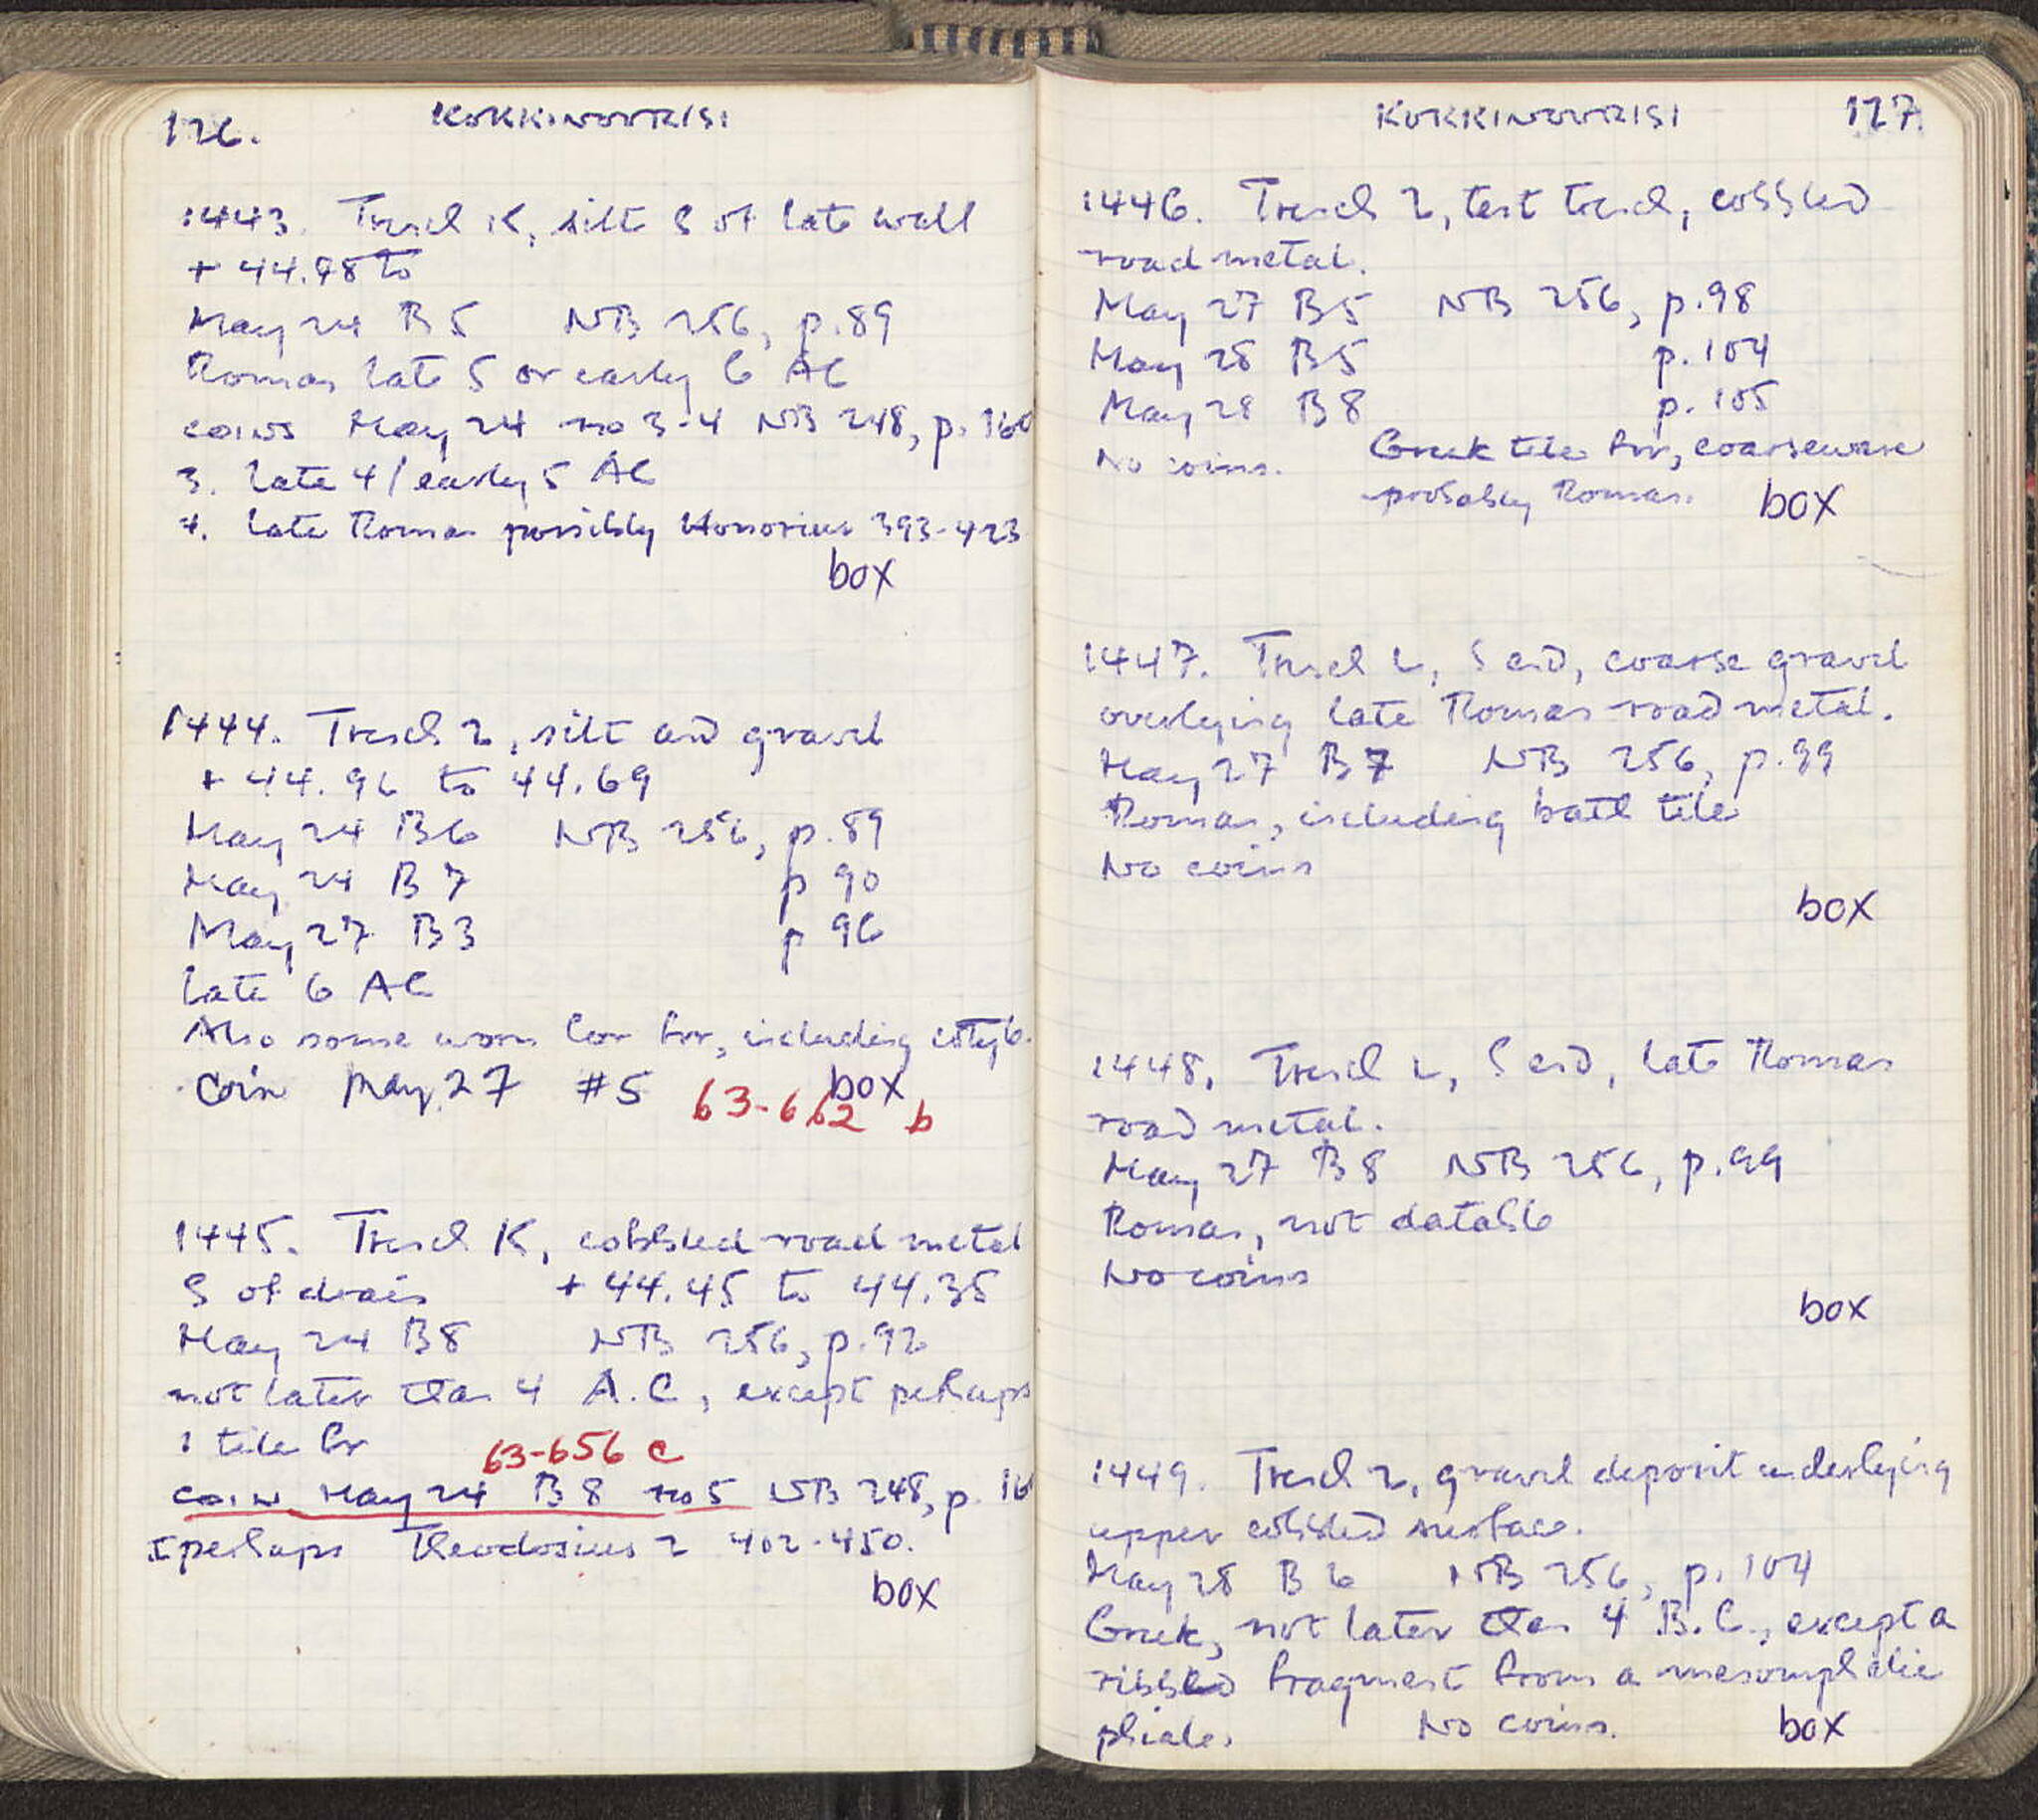 126. KOKKINOVRISI
1443. Trench K, silt S of late wall
+ 44.98 to
May 24 B5 NB 256, p.89
Roman late 5 or early 6 AC
coins May 24 no 3-4 NB 248, p. 160
3. late 4/early 5 AC
4. late Roman possibly Honorius 393-423
box
1444. Trench L, silt and gravel
+ 44.96 to 44.69
May 24 B6 NB 256, p.89
May 24 B7 p 90
May 27 B3 p 96
late 6 AC
Also some worn Cor fr, including cotyle.
Coin May 27 #5 box
63-662 b
1445. Trench K, cobbled road metal
S of drain + 44.45 to 44.35
May 24 B8 NB 256, p.92
not later than 4 A.C, except perhaps
1 tile fr
63-656 c
coin May 24 B8 no 5 NB 248, p. 16
perhaps Theodosius 2 402-450.
box
KOKKINOVRISI 127.
1446. Trench L, test trench, cobbled
road metal.
May 27 B5 NB 256, p.98
May 28 B5 p.104
May 28 B8 p.105
No coins. Greek tile frr, coarseware
probably Roman. box
1447. Trench L, S end, coarse gravel
overlying late Roman road metal.
May 27 B7 NB 256, p.99
Roman, including bath tile
No coins
box
1448. Trench L, S end, late Roman
road metal.
May 27 B8 NB 256, p.99
Roman, not datable
No coins
box
1449. Trench L, gravel deposit underlying
upper cobbled surface.
May 28 B6 NB 256, p. 104
Greek, not later than 4 B.C., except a
ribbed fragment from a mesomphalic
phiale. No coins. box